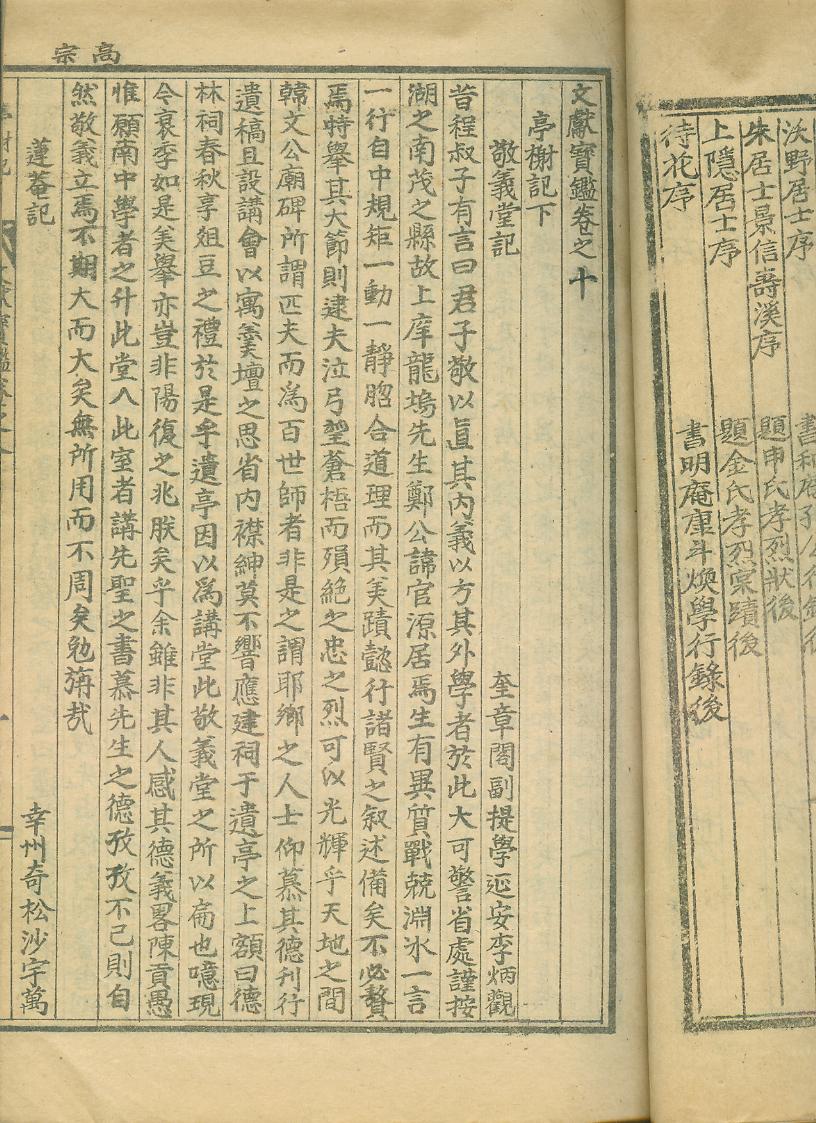 沃野居士序
朱居士景信壽溪序
題申氏孝烈狀後
上隱居士序
題金氏孝烈㝡蹟後
待花序
書明庵康斗煥學行錄後
高宗
文獻寶鑑卷之十
亭榭記下
敬義堂記
奎章閣副提學延安李炳觀
昔程叔子有言曰君子敬以直其內義以方其外學者於此大可警省處謹按
湖之南茂之縣故上庠龍塢先生鄭公諱官源居焉生有異質戰兢淵氷一言
一行自中規矩一動一靜脗合道理而其美蹟懿行諸賢之叙述備矣不必贅
焉特擧其大節則逮夫泣弓望蒼梧而殞絶之忠之烈可以光輝乎天地之間
韓文公廟碑所謂匹夫而爲百世師者非是之謂耶鄕之人士仰慕其德刊行
遺稿且設講會以寓羹墻之思省內襟紳莫不響應建祠于遺亭之上額曰德
林祠春秋享俎豆之禮於是乎遺亭因以爲講堂此敬義堂之所以扁也噫現
今衰季如是美擧亦豈非陽復之兆朕矣乎余雖非其人感其德義畧陳貢愚
惟願南中學者之升此堂入此室者講先聖之書慕先生之德孜孜不已則自
然敬義立焉不期大而大矣無所用而不周矣勉旃哉
蓮菴記
幸州奇松沙宇萬